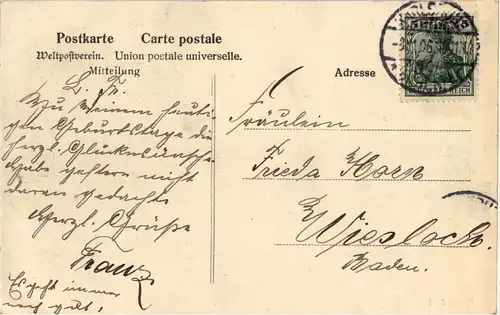 Postkarte Carte postale
Weltpostverein. Union postale universelle.
Mitteilung
Adresse
L. Fr.
Zu Deinem heuti-
gen Geburtstage die
herzl. Glückwünsche
Habe gestern nicht
daran gedacht
Herzl. Grüße
Franz
Es geht immer
noch gut.
Fräulein
Frieda Horn
Wiesloch.
Baden.
REICH